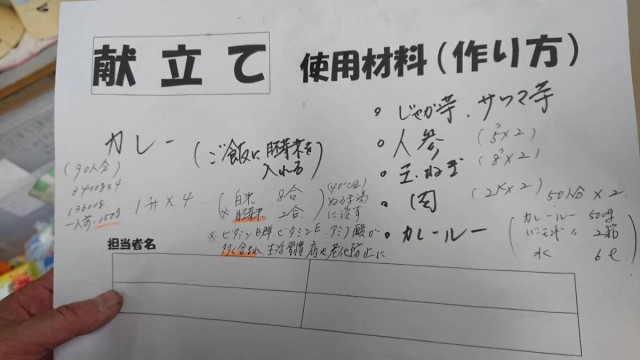 献立て
使用材料(作り方)
カレー
(ご飯に胚芽米を
入れる)
(90人分)
3400g×4
13600g
一人前150g
1升×4
(白米 8合
※胚芽米 2合)
(40℃位)
ぬるま湯
に浸す
※ビタミンB群ビタミンE、アミノ酸が
多く含まれ 生活習慣病や老化防止に
• じゃが芋、サツマ芋
• 人参 (5×2)
• 玉ねぎ (8×2)
• 肉 (2K×2) 50人分×2
• カレールー
(カレールー 50皿
バーモント 〃 2箱
水 6ℓ)
担当者名